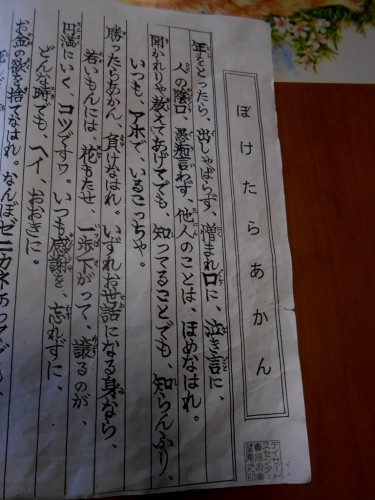 ぼけたらあかん
年をとったら、出しゃばらず、憎まれ口に、泣き言に、
人の陰口、愚痴言わず、他人のことは、ほめなはれ。
聞かれりゃ教えてあげてでも、知ってることでも、知らんふり、
いつも、アホで、いるこっちゃ。
勝ったらあかん、負けなはれ。いずれお世話になる身なら、
若いもんには、花もたせ、一歩下がって、譲るのが、
円満にいく、コツですワ。いつも感謝を、忘れずに、
どんな時でも、ヘイおおきに。
お金の欲を捨てなはれ。なんぼゼニカネあっても、
デイサービ
スセンター